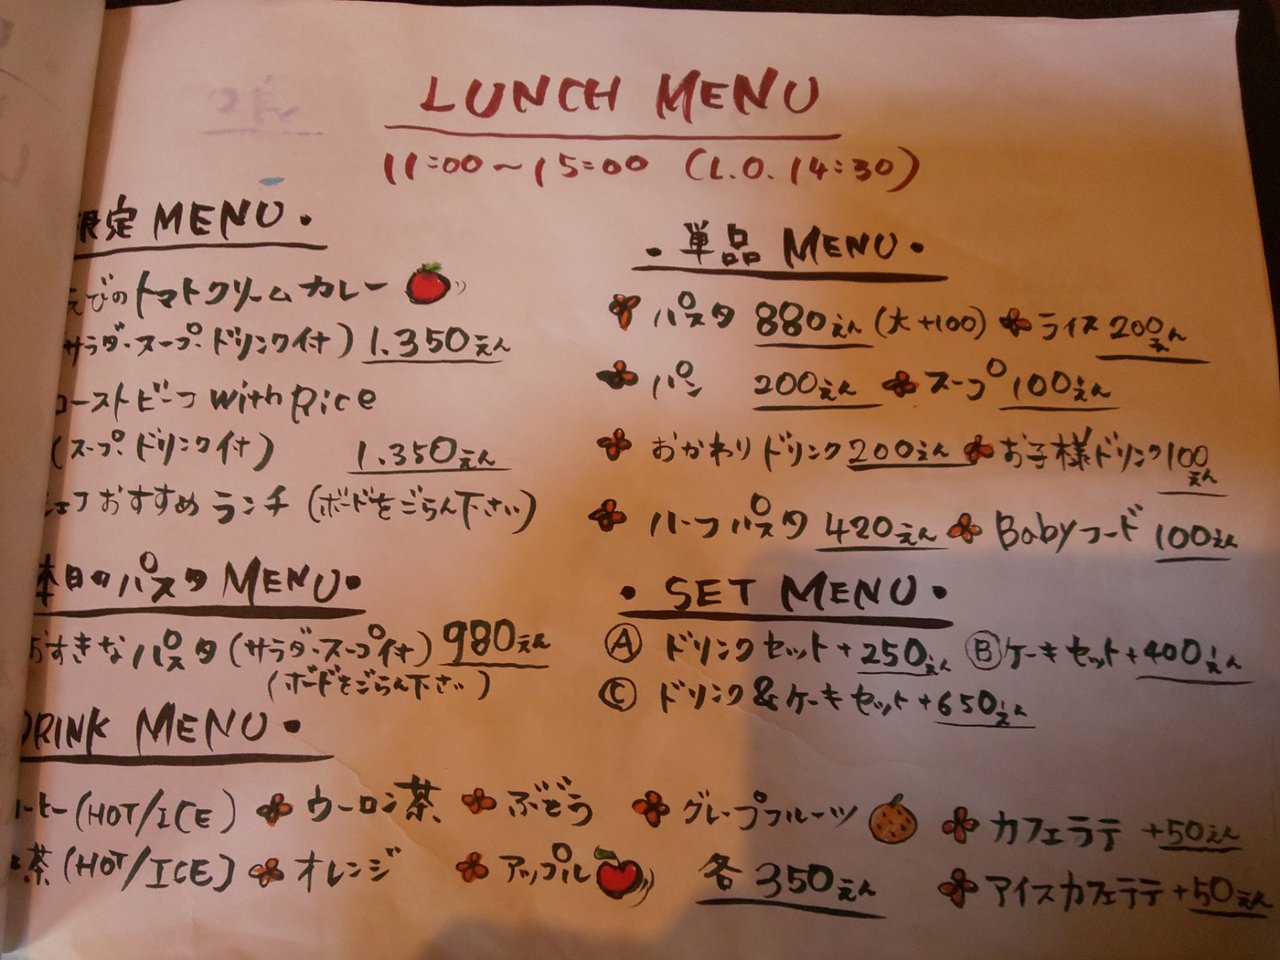 LUNCH MENU
11:00〜15:00 (L.O. 14:30)
限定 MENU・
えびのトマトクリームカレー
サラダ・スープ・ドリンク付) 1.350えん
ローストビーフ with Rice
(スープ・ドリンク付) 1.350えん
シェフおすすめランチ (ボードをごらん下さい)
本日のパスタ MENU・
おすきなパスタ (サラダ・スープ付) 980えん
(ボードをごらん下さい)
DRINK MENU・
ーヒー (HOT/ICE) ウーロン茶 ぶどう グレープフルーツ カフェラテ +50えん
茶 (HOT/ICE) オレンジ アップル 各350えん アイスカフェラテ +50えん
・単品 MENU・
パスタ 880えん (大+100) ライス 200えん
パン 200えん スープ 100えん
おかわりドリンク 200えん お子様ドリンク 100えん
ハーフパスタ 420えん Babyフード 100えん
・SET MENU・
Ⓐ ドリンクセット +250えん Ⓑ ケーキセット +400えん
Ⓒ ドリンク&ケーキセット +650えん